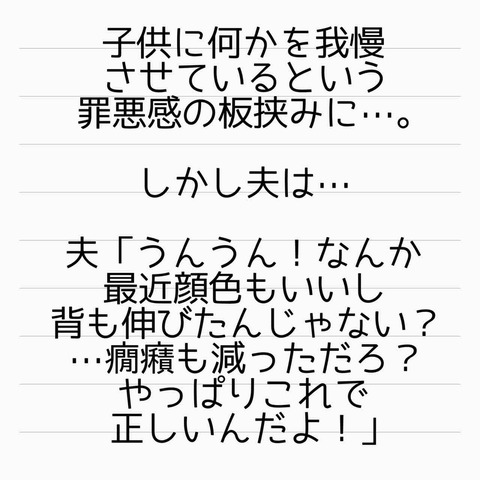 子供に何かを我慢
させているという
罪悪感の板挟みに…。
しかし夫は…
夫「うんうん！なんか
最近顔色もいいし
背も伸びたんじゃない？
…癇癪も減っただろ？
やっぱりこれで
正しいんだよ！」